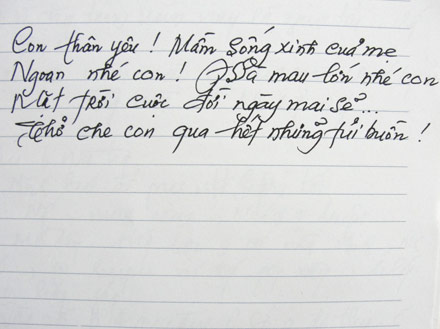 Con thân yêu ! Mầm sống xinh của mẹ
Ngoan nhé con ! Và mau lớn nhé con
Mặt trời cuộc đời ngày mai sẽ...
chở che con qua hết những tủi buồn !